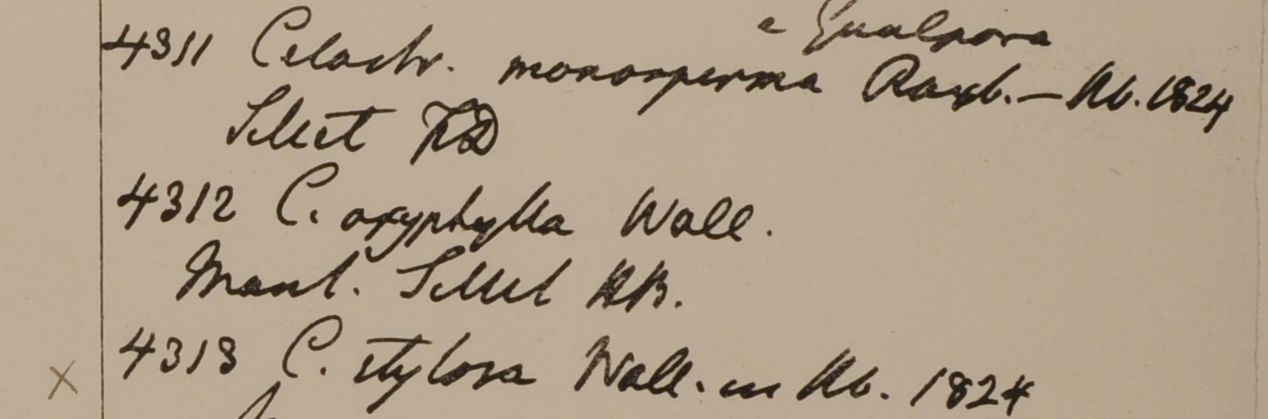 e Gualpara
4311 Celastr. monosperma Roxb. — Hb. 1824
Sillet FD
4312 C. oxyphylla Wall.
Mont. Sillet HB.
4313 C. stylosa Wall. in Hb. 1824